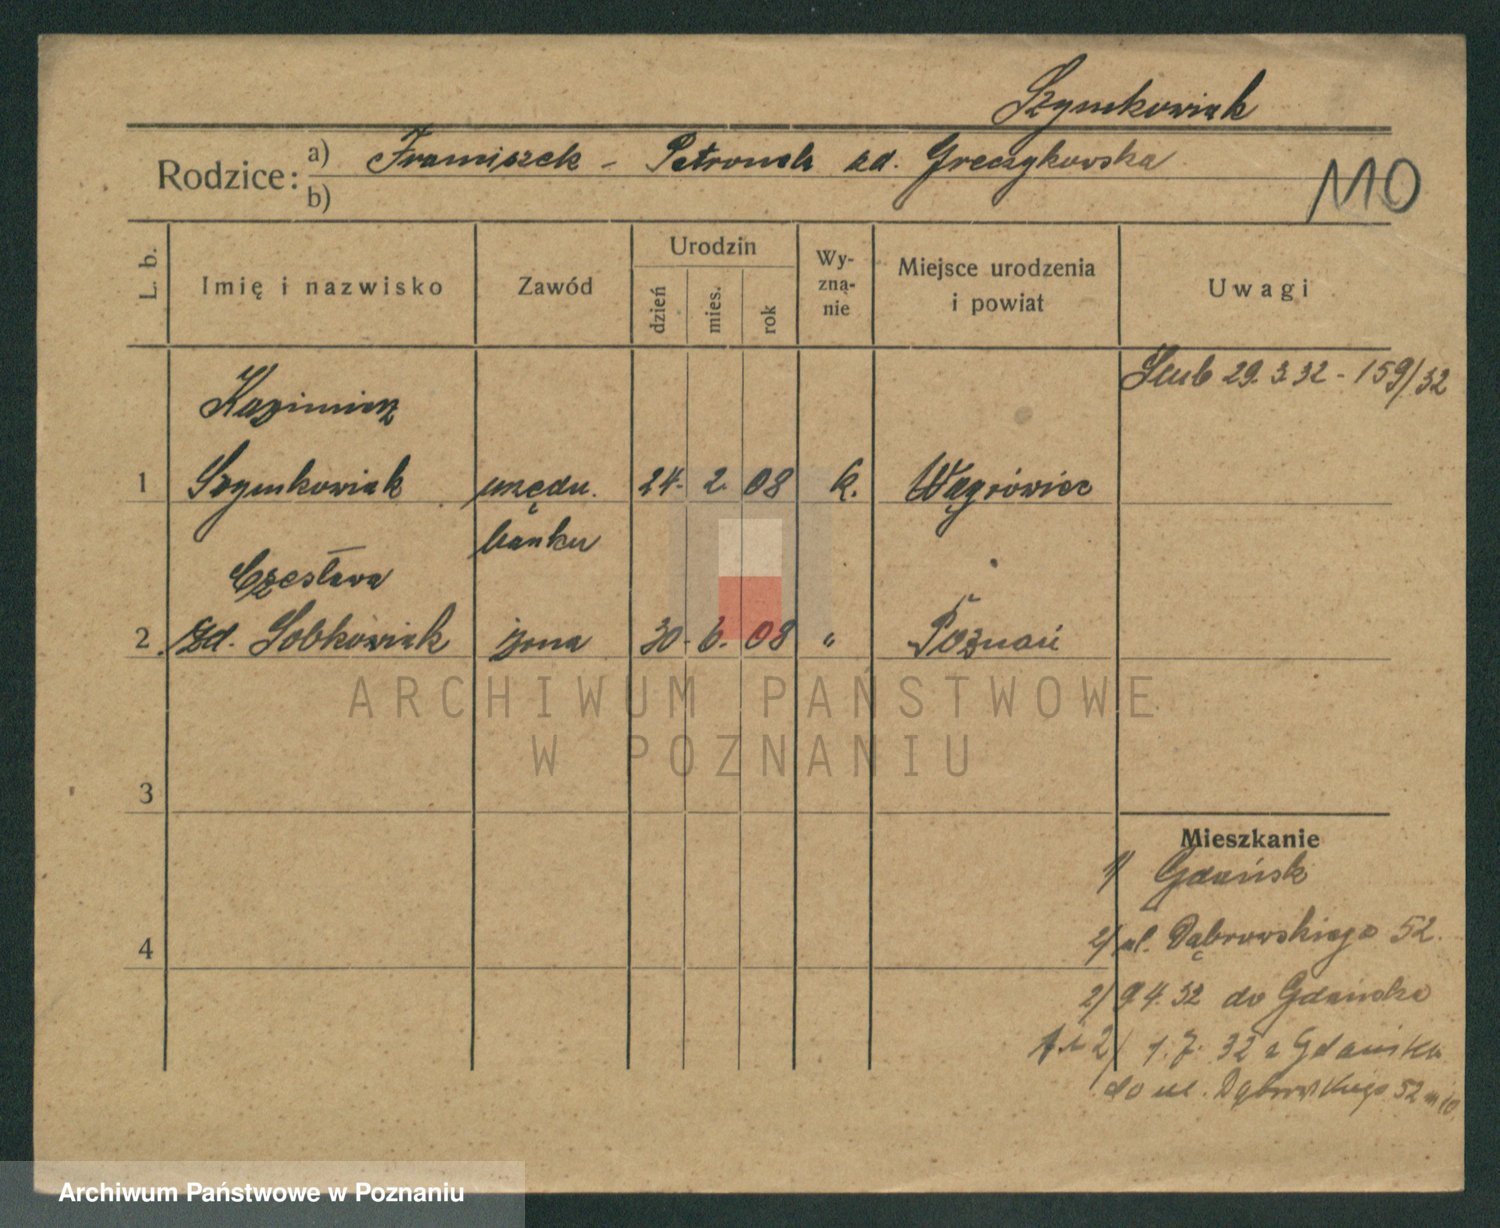 Szymkowiak
Rodzice: a) Franciszek - Petronela zd. Greczykowska
b)
M0
L. b. Imię i nazwisko Zawód Urodzin dzień mies. rok Wy-zna-nie Miejsce urodzenia i powiat Uwagi
Ślub 29. 3 32 - 159/32
Kazimierz
1 Szymkowiak urzędn. 24. 2. 08 k. Wągrówiec
banku
Czesława
2 zd. Sobkowiak żona 30. 6. 08 " Poznań
ARCHIWUM PAŃSTWOWE
W POZNANIU
3
Mieszkanie
1/ Gdańsk
4
2/ ul. Dąbrowskiego 52.
2/ 9 4. 32 do Gdańska
1 i 2/ 1. 7. 32 z Gdańska
do ul. Dąbrowskiego 52 m 10.
Archiwum Państwowe w Poznaniu